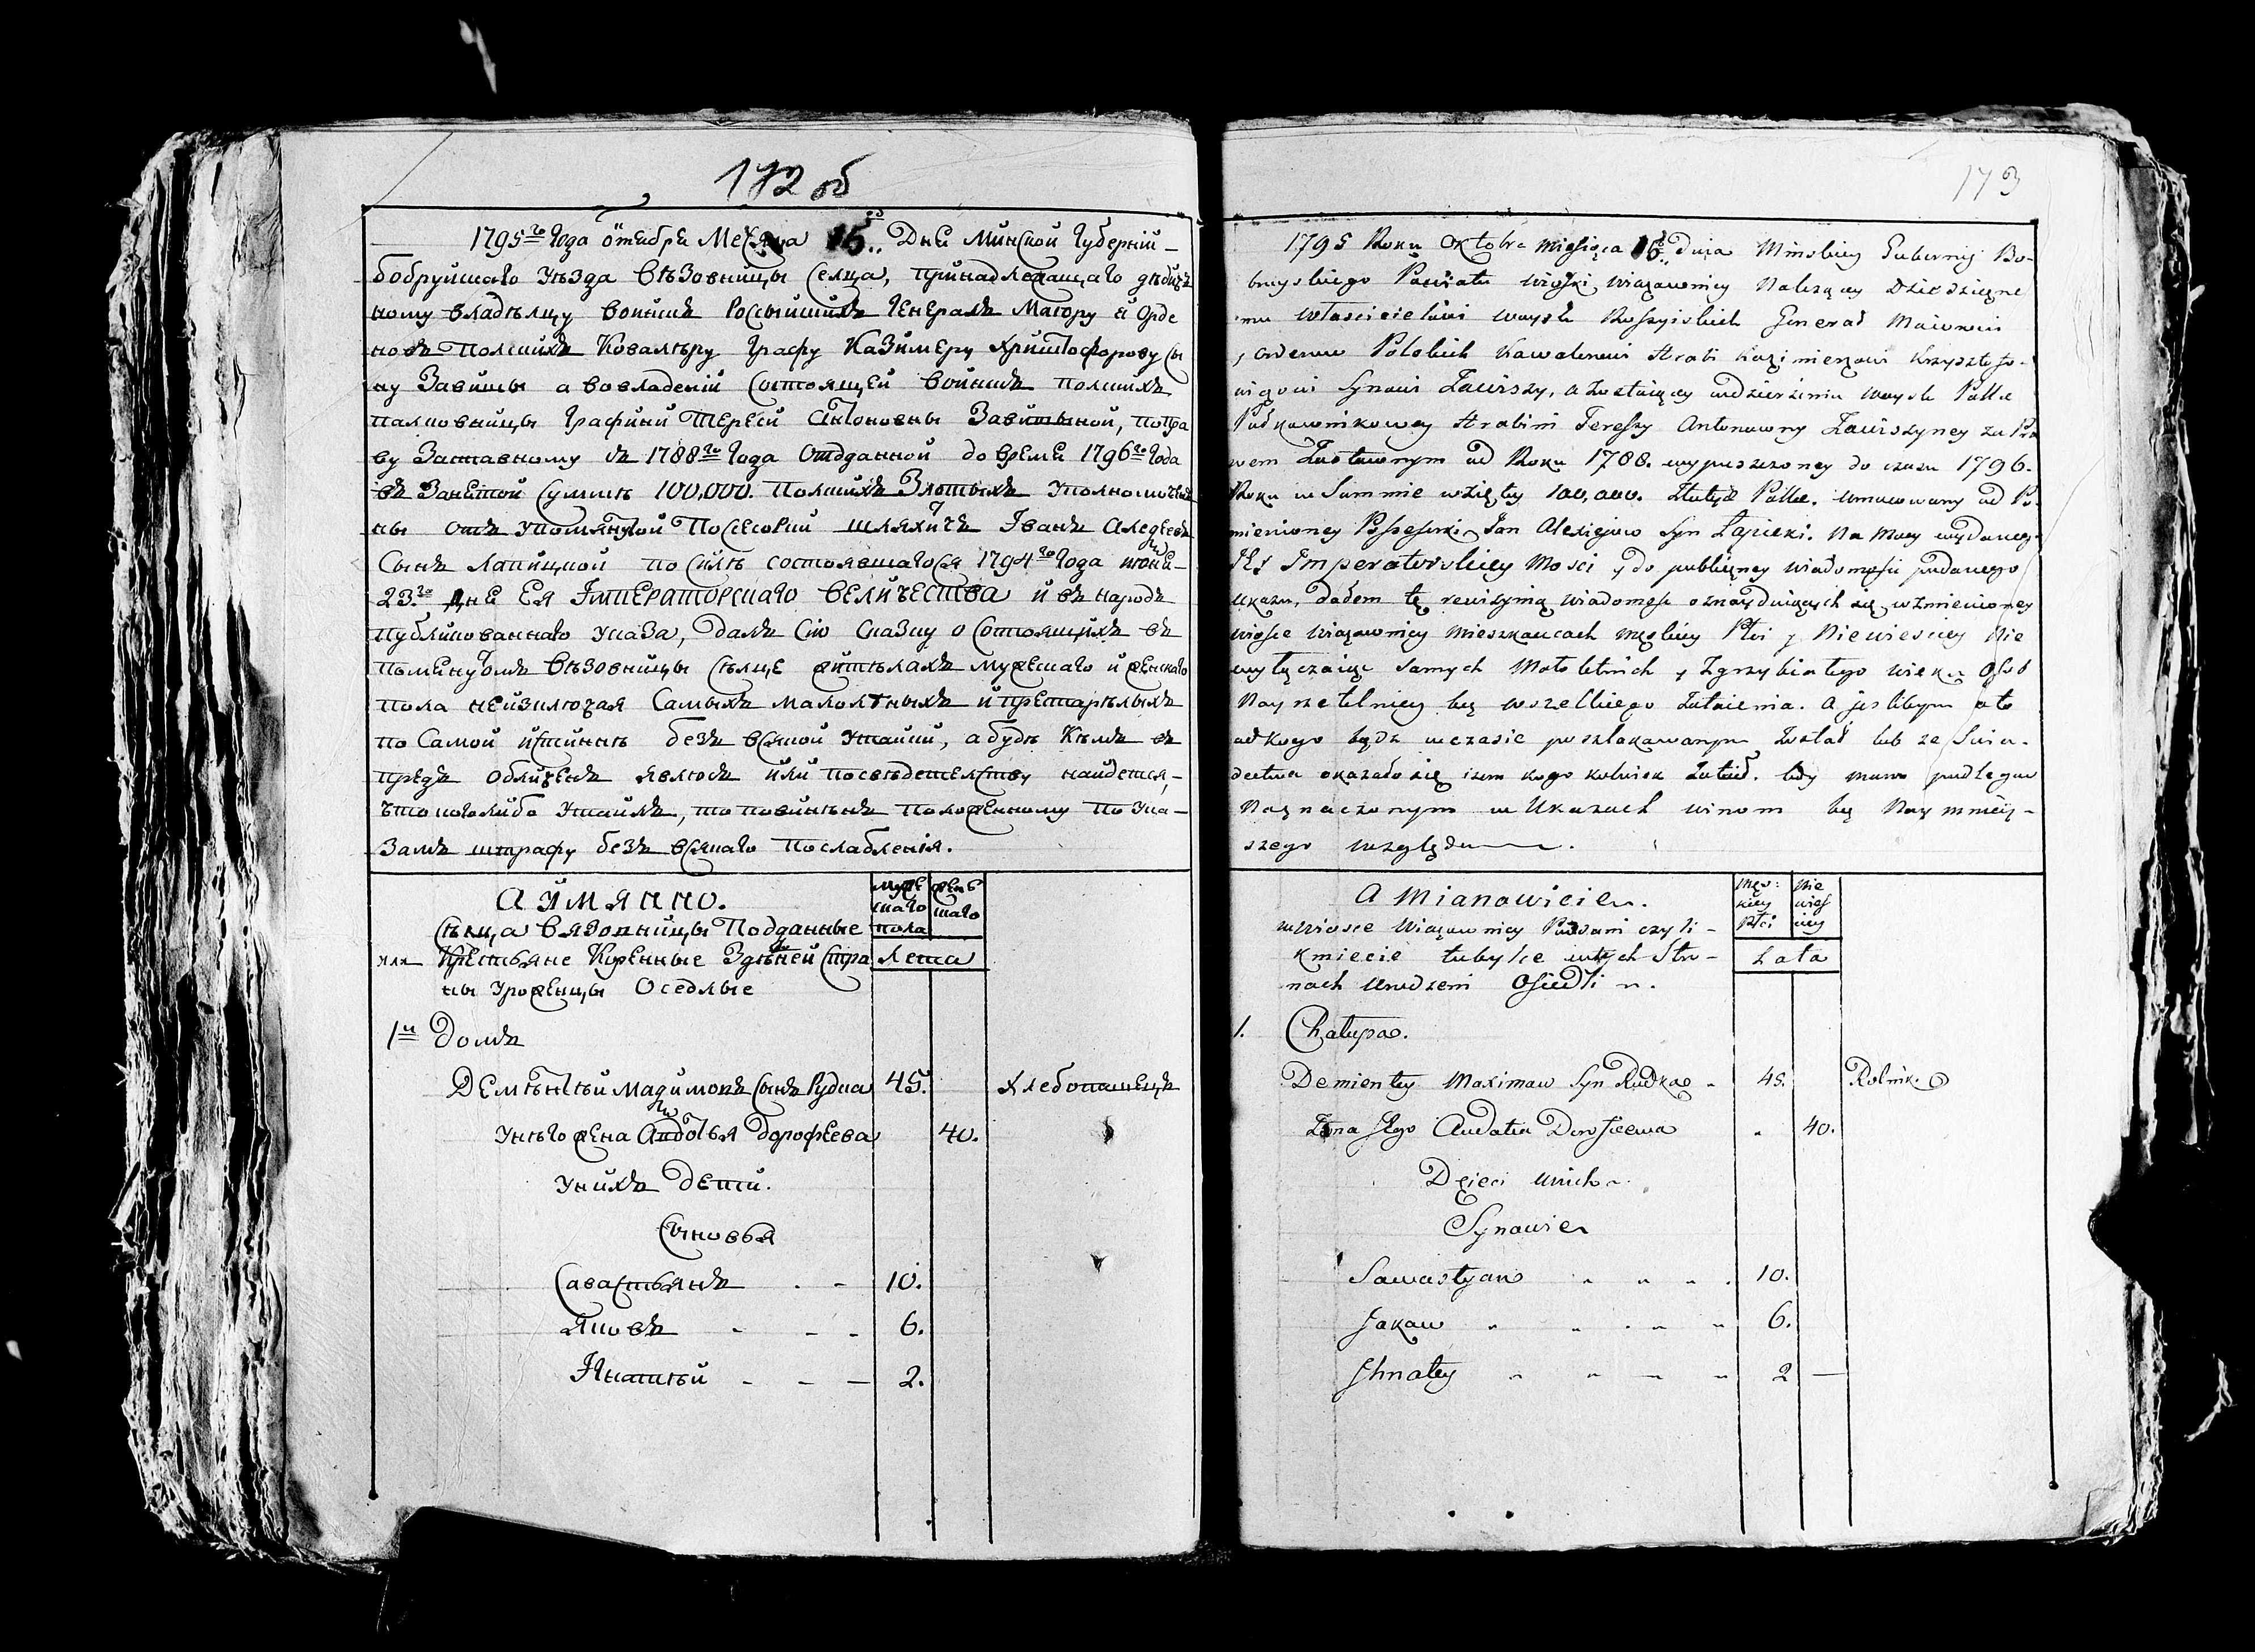 172 об
1795го Года октебри Месяца 16го Дне Минской Губерний
бобруйскаго Уѣзда Вѣзовницы Селца, принадлежащаго дѣдичъ
ному владѣлцу войскъ Россыйскихъ Генералъ Маіору и Орде
новъ полскихъ Ковалѣру Графу Казимеру Христофорову сы
ну Завишы а вовладений состоящей войскъ полскихъ
палковницы Графини Терези Антоновны Завишыной, попра
ву Заставному съ 1788го Года отдданной до время 1796го Года
въ Занятой суммѣ 100,000. полскихъ Злотыхъ уполномочен
ны отъ упомянутой Посесорки шляхичъ Іванъ Алексеевъ
Сынъ Лапицкой по силѣ состоявшагося 1794го Года июни
23го дне Ея Императорскаго величества и въ народъ
публикованнаго указа, далъ сію сказку о состоящихъ въ
помену томъ вѣзовницы сѣлце жителахъ мужескаго и женскаго
пола неизключая самыхъ малолтныхъ и престарѣлыхъ
по самой истиннѣ безъ всякой утайки, а будѣ кѣмъ въ
предъ обличенъ явлюсь или посвѣдетелству найдется,
что коголибо утаилъ, то повинѣнъ положенному по ука
замъ штрафу безъ всякаго послабленія.
А имянно.
муже
скаго
пола
жене
скаго
Лета
Сѣлца Вязовницы Подданные
или Крестьяне Коренные Здѣшней стра
ны Уроженцы Оседлые
1й Домъ
Демѣнтѣй Мадимовъ сынъ Рудка 45. хлебопашецъ
Унѣго жена Авдотья Дорофеева 40.
Унихъ дети.
Сыновья
Савастьянъ - - 10.
Яковъ - - - 6.
Ігнатѣй - - - 2.
173
1795 Roku Oktobra miesiąca 16. Dnia Minskiey Gubernij Bo-
bruyskiego Powiatu wioski wiązownicy Należącey Dziedziczne
mu właścicielowi woysk Rossyiskich Generał Maiorowi
y orderow Polskich Kawalerowi Hrabi Kazimierzowi Krzysztofo-
wiczowi synowi Zawiszy, a zostaiącey wdzierżeniu woysk Polskie
Pułkownikowey Hrabini Teressy Antonowny Zawiszyney za Pra
wem Zastawnym od Roku 1788. wypuszczoney do czasu 1796.
Roku w Summie wzięty 100,000. Złotych Polskie. umocowany od Po-
mienioney Possessorki Jan Alexiejow syn Łapicki. Na mocy wydanego
Jey Imperatorskiey Mosci y do publiczney wiadomości podanego
ukazu, dałem tę rewizyiną wiadomość oznayduiących się wzmienioney
wiosce wiązownicy mieszkańcach męskiey Płci y Niewiesciey Nie
wyłączaiąc samych małoletnich y zgrzybiałego wieku Osob
Nayrzetelniey bez wszelkiego zataienia. a jeslibym oto
odkogo bądz wczasie poszlakowanym został lub ze swia-
dectwa okazało się izem kogo kolwiek zataił. tedy mam podlegać
Naznaczonym w Ukazach winom bez Naymniey-
szego względu.
A Mianowicie.
męz:
kiey
płci
Nie
wies
ciey
Lata
wwiosce Wiązownicy Poddani czyli
Kmiecie tubylce wtych Stro-
nach urodzeni Osiedli.
1. Chałupa.
Demientey Maximow syn Rudka 45. Rolnik.
Zona Jego Audatia Dorofieewa 40.
Dzieci unich.
Synowie
Sawastyan 10.
Jakow 6.
Ihnatey 2